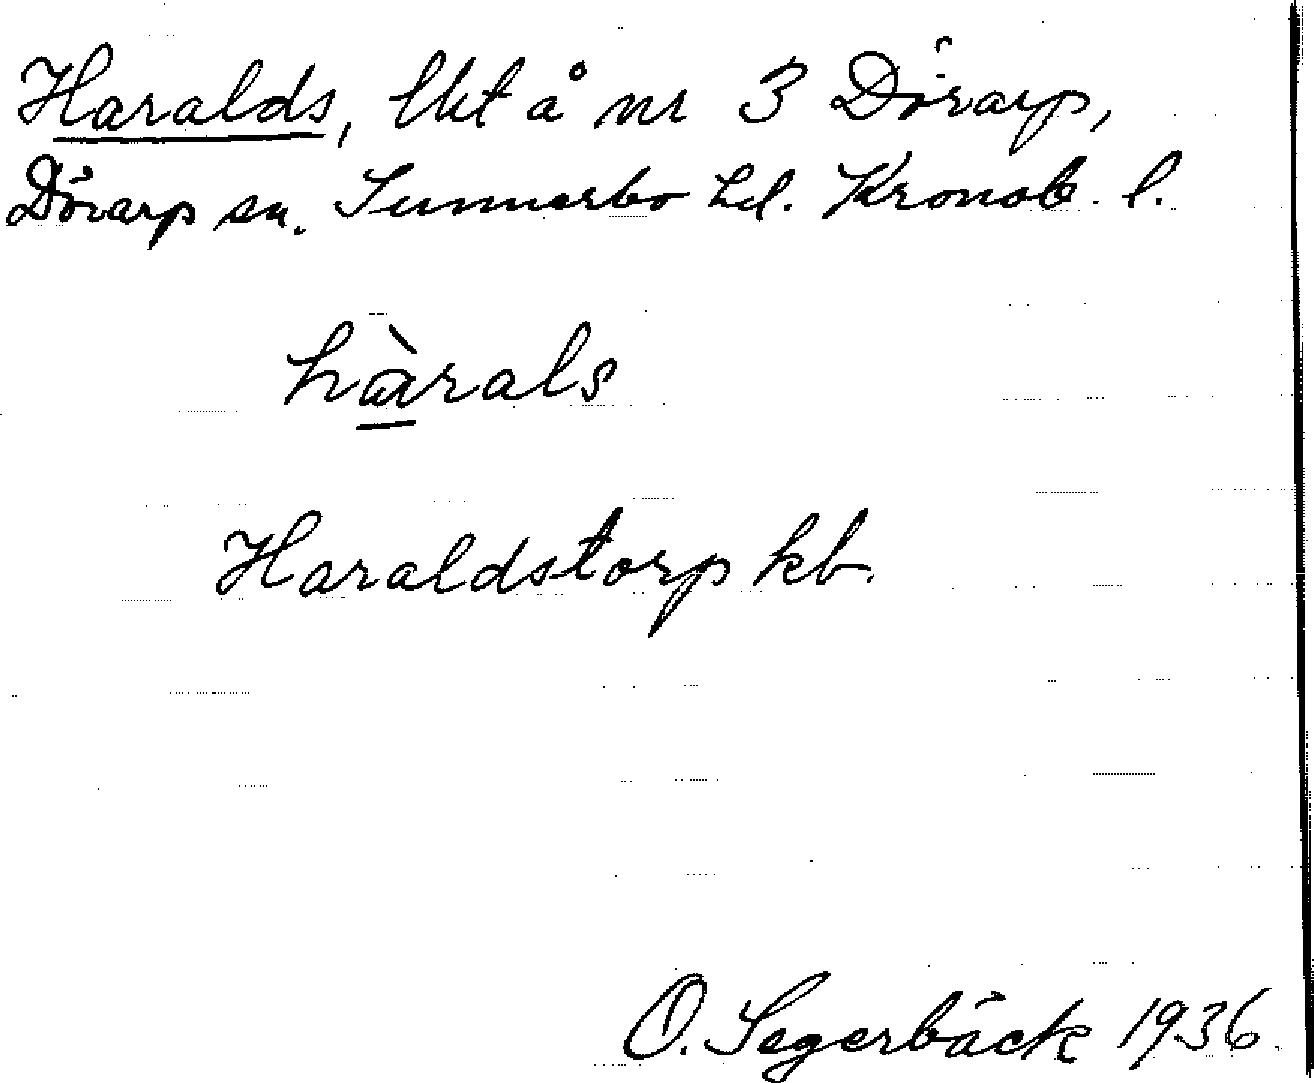 Haralds, lht å nr 3 Dörarp,
Dörarp sn. Sunnerbo hd. Kronob. l.
hàrals
Haraldstorp kb.
O. Segerbäck 1936